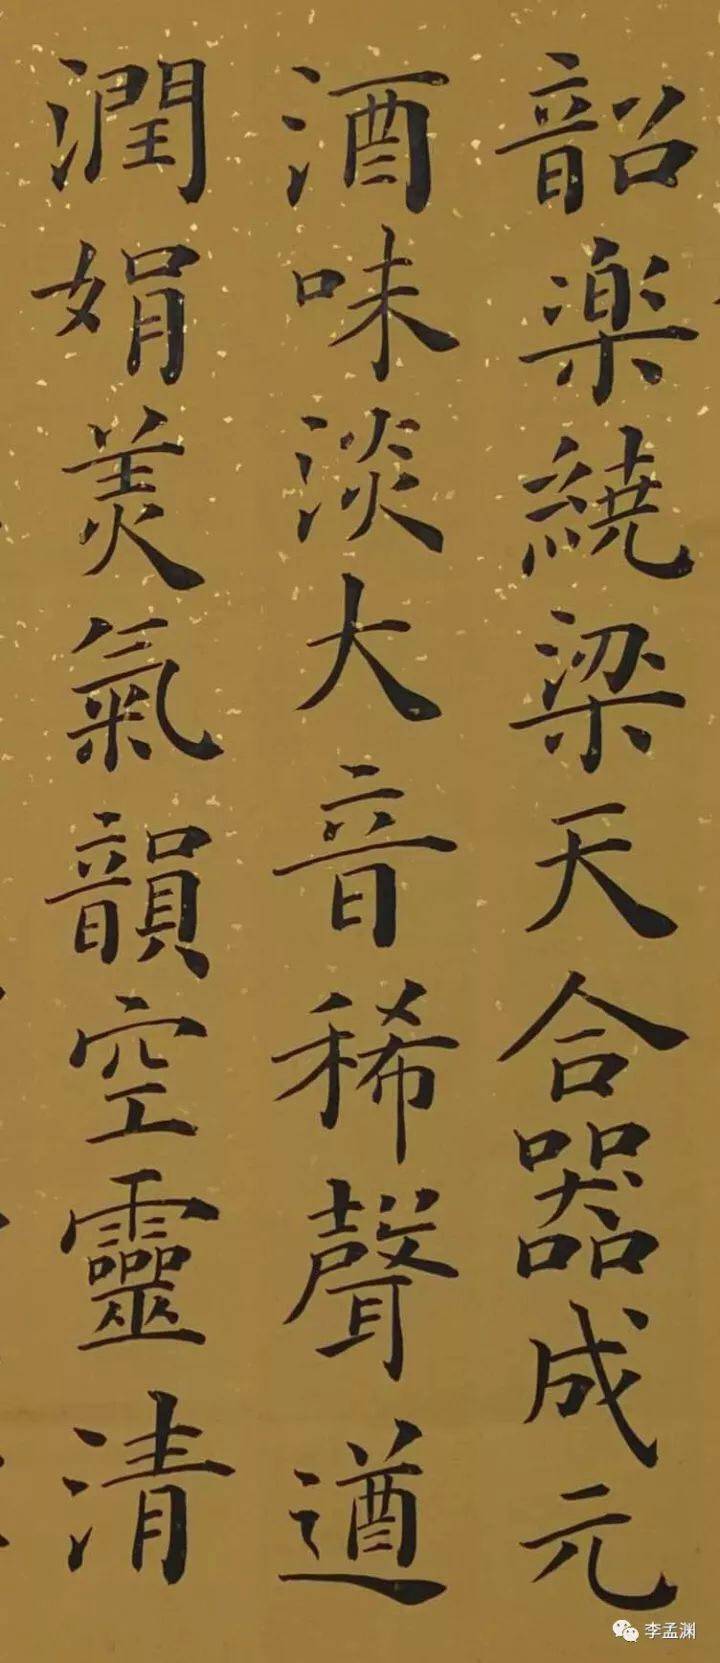 韶楽繞梁天合器成元
酒味淡大音稀聲遒
潤娟美氣韻空靈清
李孟渊